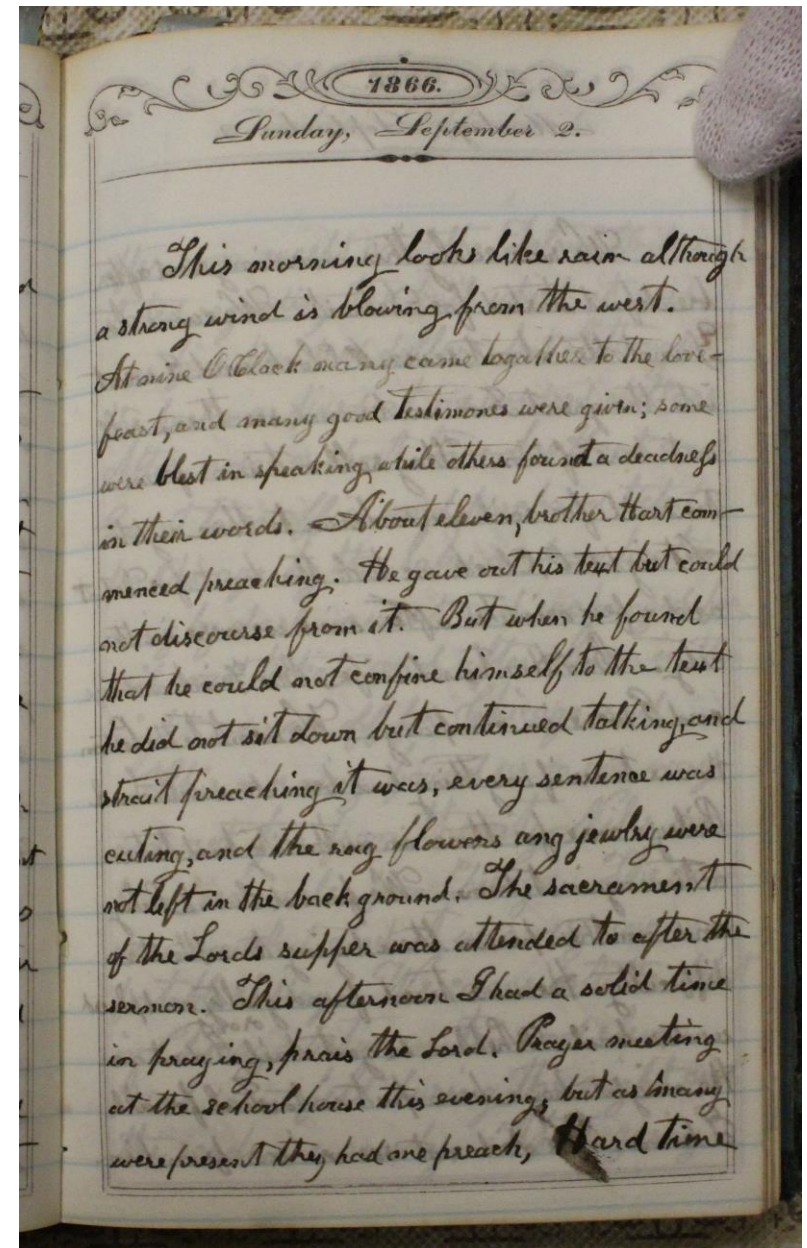 1866.
Sunday, September 2.
This morning looks like rain although
a strong wind is blowing from the west.
At nine O'Clock many came togather to the love-
feast, and many good testimones were given; some
were blest in speaking while others found a deadness
in their words. About eleven, brother Hart com-
menced preaching. He gave out his text but could
not discourse from it. But when he found
that he could not confine himself to the text
he did not sit down but continued talking, and
strait preaching it was, every sentence was
cuting, and the rag flowers ang jewlry were
not left in the back ground. The sacrament
of the Lords supper was attended to after the
sermon. This afternoon I had a solid time
in praying, prais the Lord. Prayer meeting
at the school house this evening, but as many
were present they had me preach, Hard time